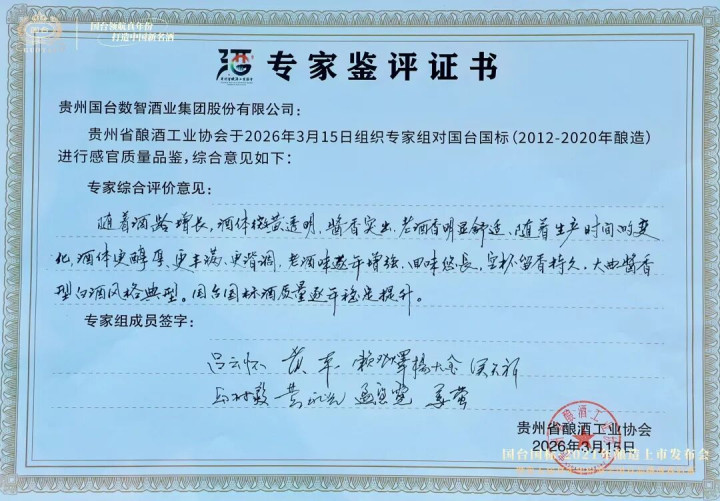 国台领航真年份
打造中国新名酒
专家鉴评证书
贵州国台数智酒业集团股份有限公司：
贵州省酿酒工业协会于2026年3月15日组织专家组对国台国标（2012-2020年酿造）
进行感官质量品鉴，综合意见如下：
专家综合评价意见：
随着酒龄增长，酒体微黄透明、酱香突出、老酒香明显舒适、随着生产时间的变
化，酒体更醇厚、更丰满、更谐调、老酒味逐年增强、回味悠长，空杯留香持久，大曲酱香
型白酒风格典型。国台国标酒质量逐年稳定提升。
专家组成员签字：
吕云怀
贵州省酿酒工业协会
2026年3月15日
国台国标·2021年酿造上市发布会